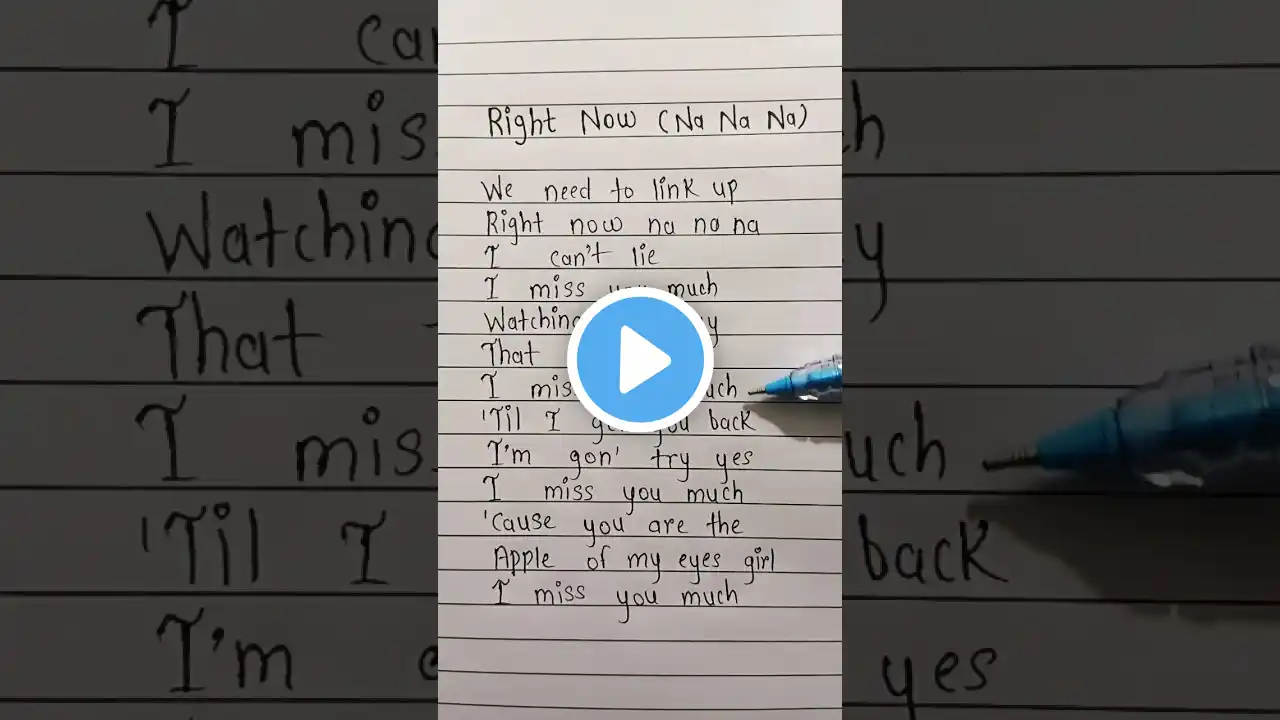 Right Now (Na Na Na)
We need to link up
Right now na na na
I can't lie
I miss you much
Watching
That
I miss much
'Til I you back
I'm gon' try yes
I miss you much
'Cause you are the
Apple of my eyes girl
I miss you much